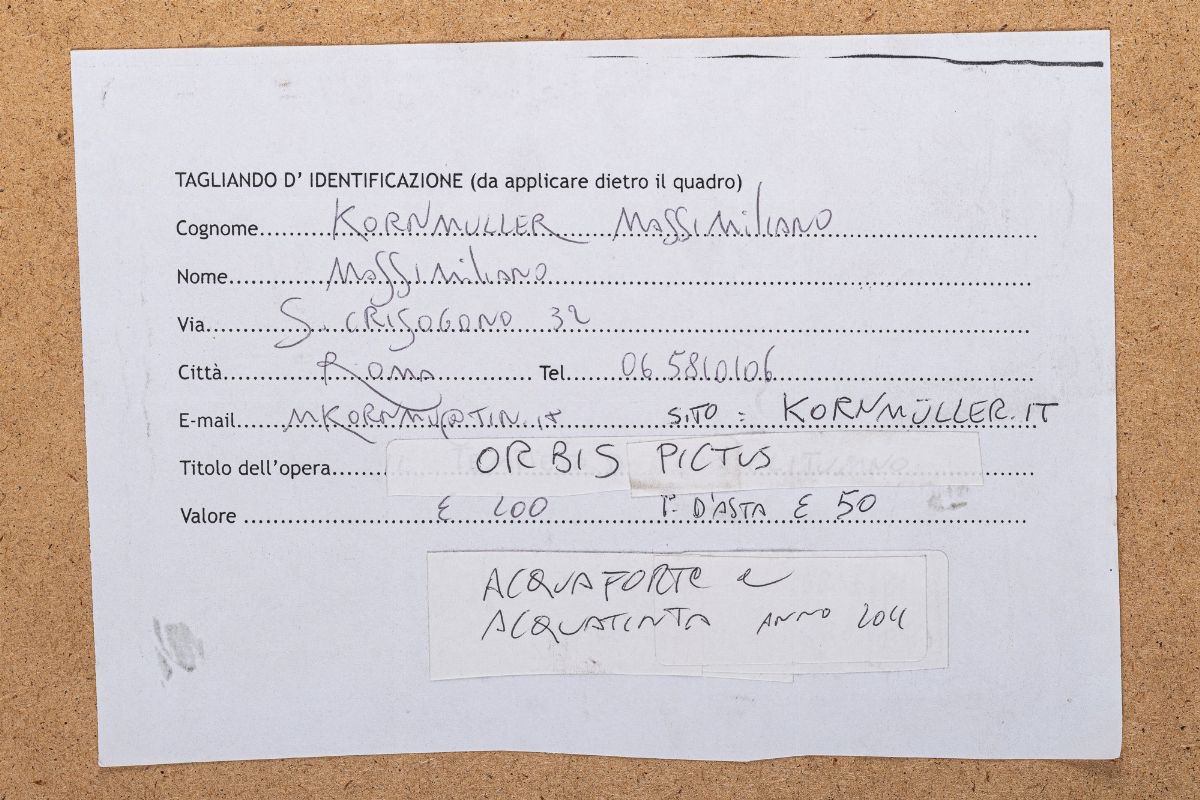 TAGLIANDO D' IDENTIFICAZIONE (da applicare dietro il quadro)
Cognome KORNMULLER MASSIMILIANO
Nome MASSIMILIANO
Via S. CRISOGONO 32
Città ROMA Tel. 06 5810106
E-mail MKORNMU@TIN.IT SITO = KORNMÜLLER.IT
Titolo dell'opera ORBIS PICTUS
Valore € 200 D'ASTA € 50
ACQUAFORTE e
ACQUATINTA ANNO 2011